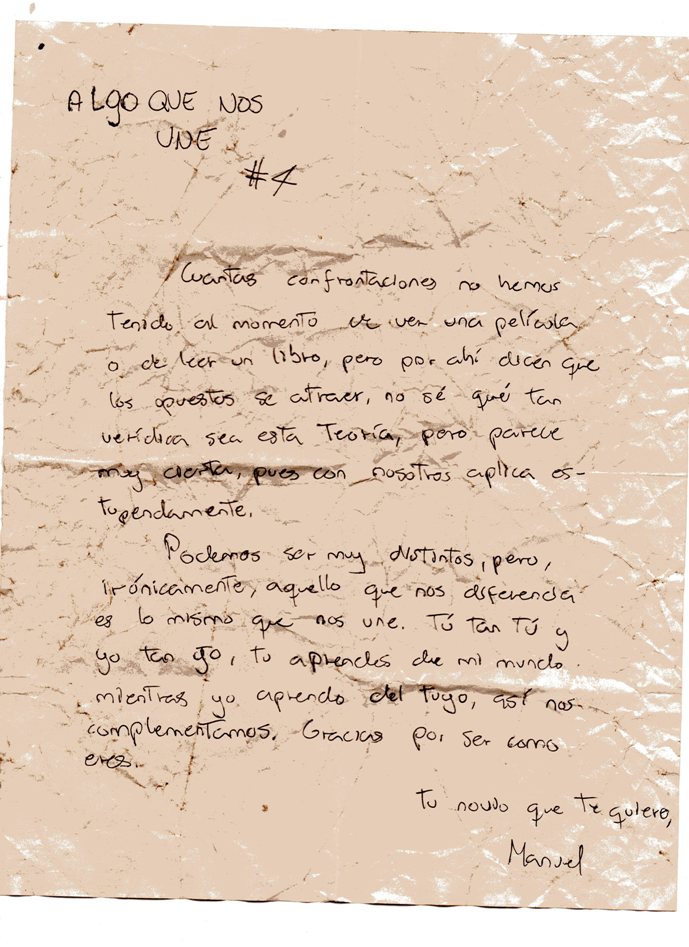 ALgO QUE NOS
UNE
#4
Cuantas confrontaciones no hemos
tenido al momento de ver una película
o de leer un libro, pero por ahí dicen que
los opuestos se atraer, no sé qué tan
verídica sea esta teoría, pero parece
muy cierta, pues con nosotros aplica es-
tupendamente.
Podemos ser muy distintos, pero,
irónicamente, aquello que nos diferencia
es lo mismo que nos une. Tú tan Tú y
yo tan yo, tu aprendes de mi mundo
mientras yo aprendo del tuyo, así nos
complementamos. Gracias por ser como
eres.
tu novio que te quiere,
Manuel